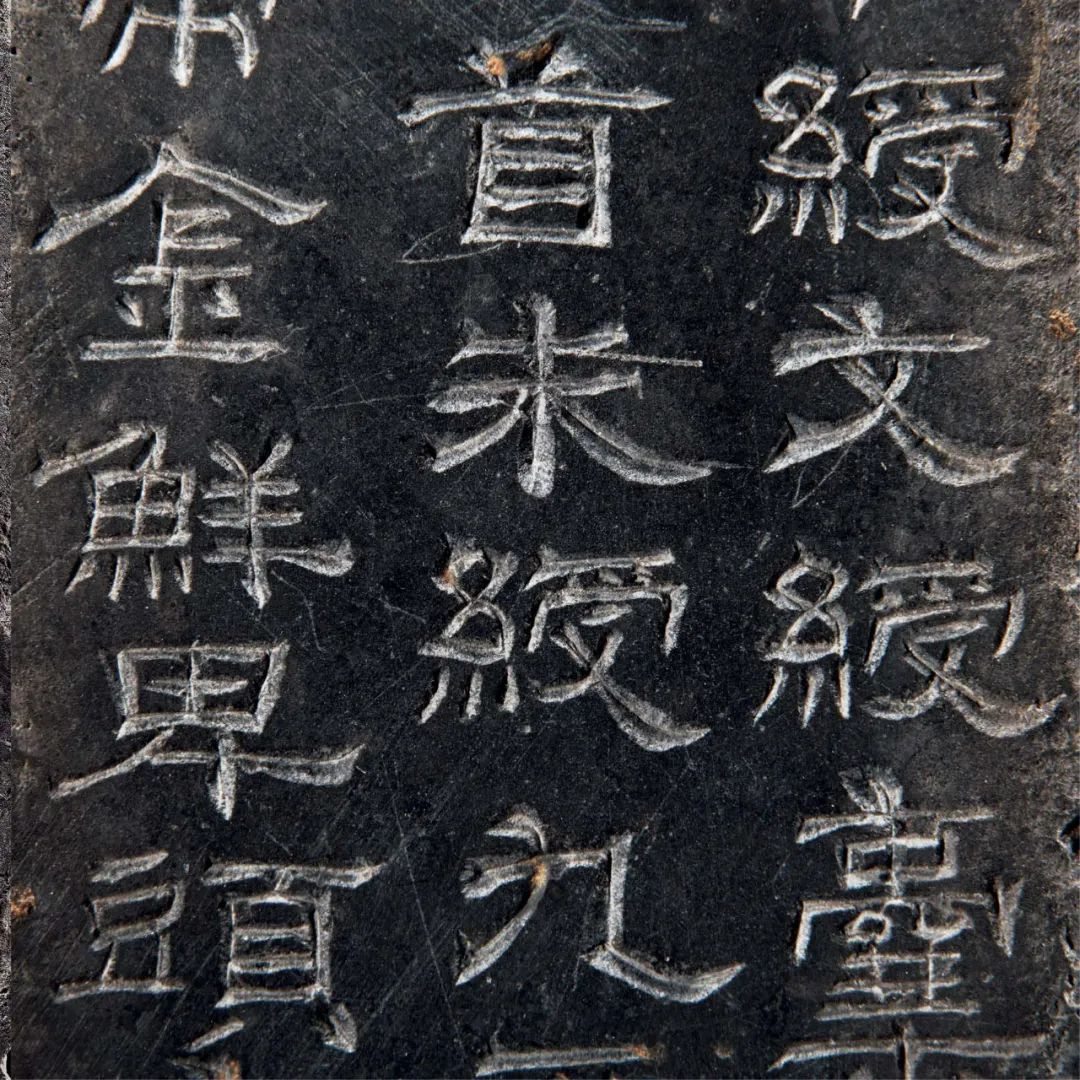 綬文綬臺
首朱綬九
金鮮卑頭